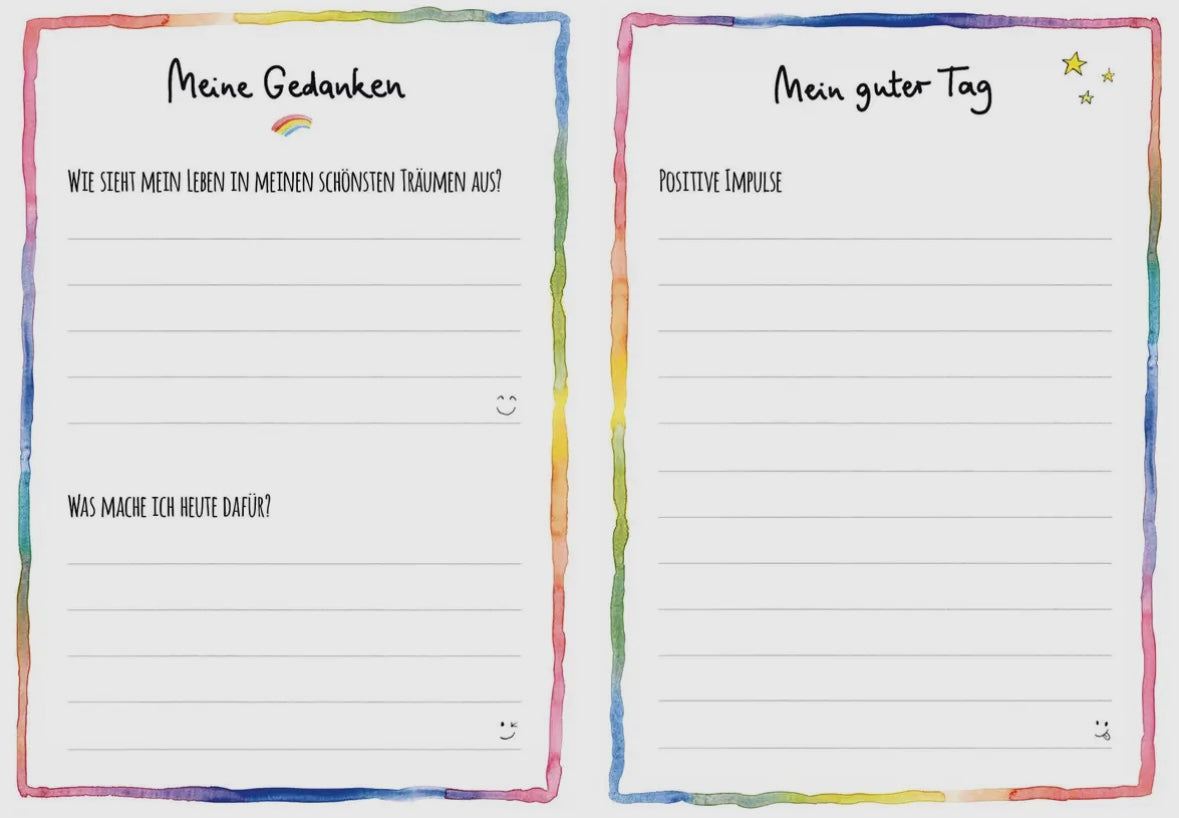 Meine Gedanken
Wie sieht mein Leben in meinen schönsten Träumen aus?
Was mache ich heute dafür?
Mein guter Tag
Positive Impulse